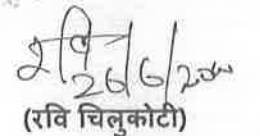 रवि
26/6/2000
(रवि चिलुकोटी)